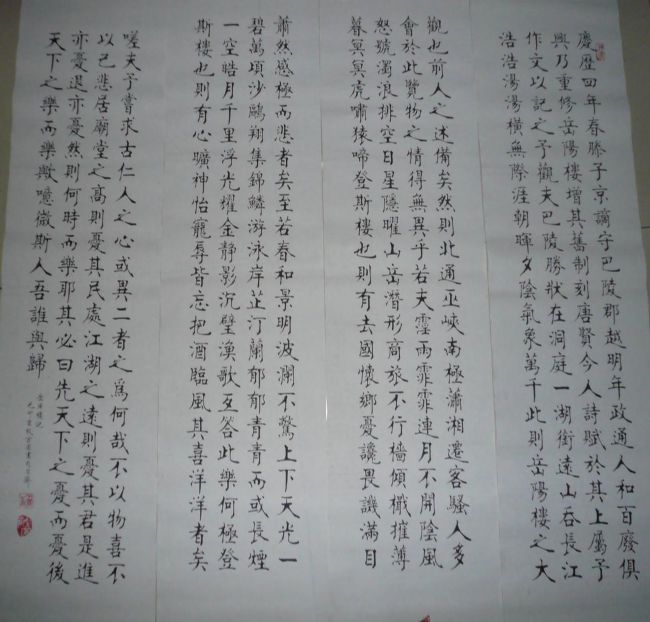 慶歷四年春滕子京謫守巴陵郡越明年政通人和百廢俱
興乃重修岳陽樓增其舊制刻唐賢今人詩賦於其上屬予
作文以記之予觀夫巴陵勝狀在洞庭一湖銜遠山吞長江
浩浩湯湯橫無際涯朝暉夕陰氣象萬千此則岳陽樓之大
觀也前人之述備矣然則北通巫峽南極瀟湘遷客騷人多
會於此覽物之情得無異乎若夫霪雨霏霏連月不開陰風
怒號濁浪排空日星隱曜山岳潛形商旅不行檣傾檝摧薄
暮冥冥虎嘯猿啼登斯樓也則有去國懷鄉憂讒畏譏滿目
蕭然感極而悲者矣至若春和景明波瀾不驚上下天光一
碧萬頃沙鷗翔集錦鱗游泳岸芷汀蘭郁郁青青而或長煙
一空皓月千里浮光耀金靜影沉璧漁歌互答此樂何極登
斯樓也則有心曠神怡寵辱皆忘把酒臨風其喜洋洋者矣
嗟夫予嘗求古仁人之心或異二者之為何哉不以物喜不
以己悲居廟堂之高則憂其民處江湖之遠則憂其君是進
亦憂退亦憂然則何時而樂耶其必曰先天下之憂而憂後
天下之樂而樂歟噫微斯人吾誰與歸
岳陽樓記